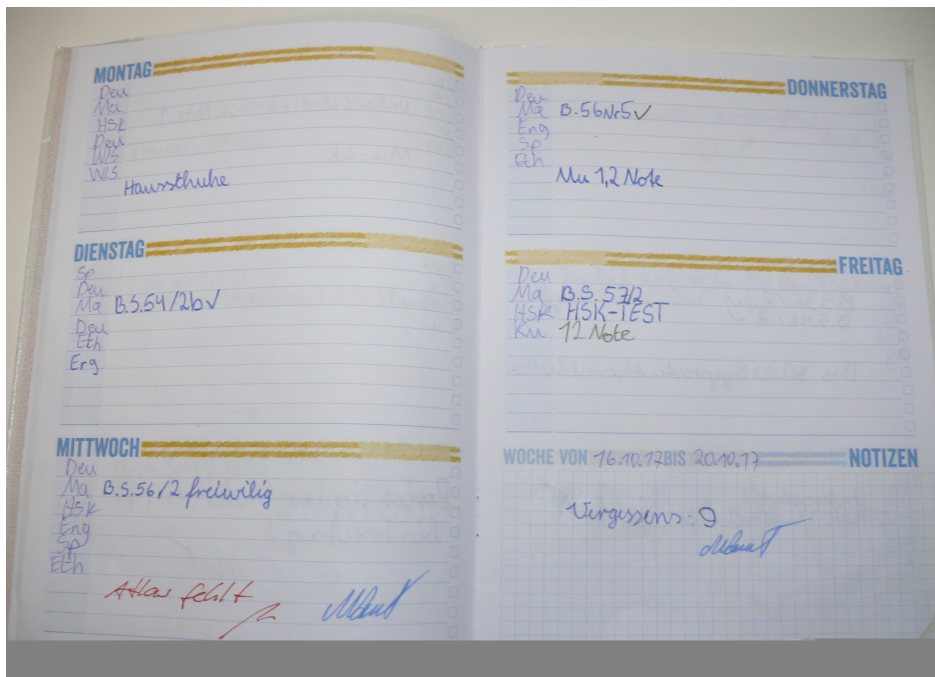 MONTAG
Deu
Ma
HSK
Deu
WIS
WIS
Haussthuhe
DIENSTAG
Sp
Deu
Ma B.S.54/2b✓
Deu
Eth
Erg
MITTWOCH
Deu
Ma B.S.56/2 freiwilig
HSK
Eng
Sp
Eth
Atlas fehlt
DONNERSTAG
Deu
Ma B.56Nr5✓
Eng
Sp
Eth
Mu 1,2 Note
FREITAG
Deu
Ma B.S.57/2
HSK HSK-TEST
Ku 12 Note
WOCHE VON 16.10.17 BIS 20.10.17 NOTIZEN
Vergessens: 9